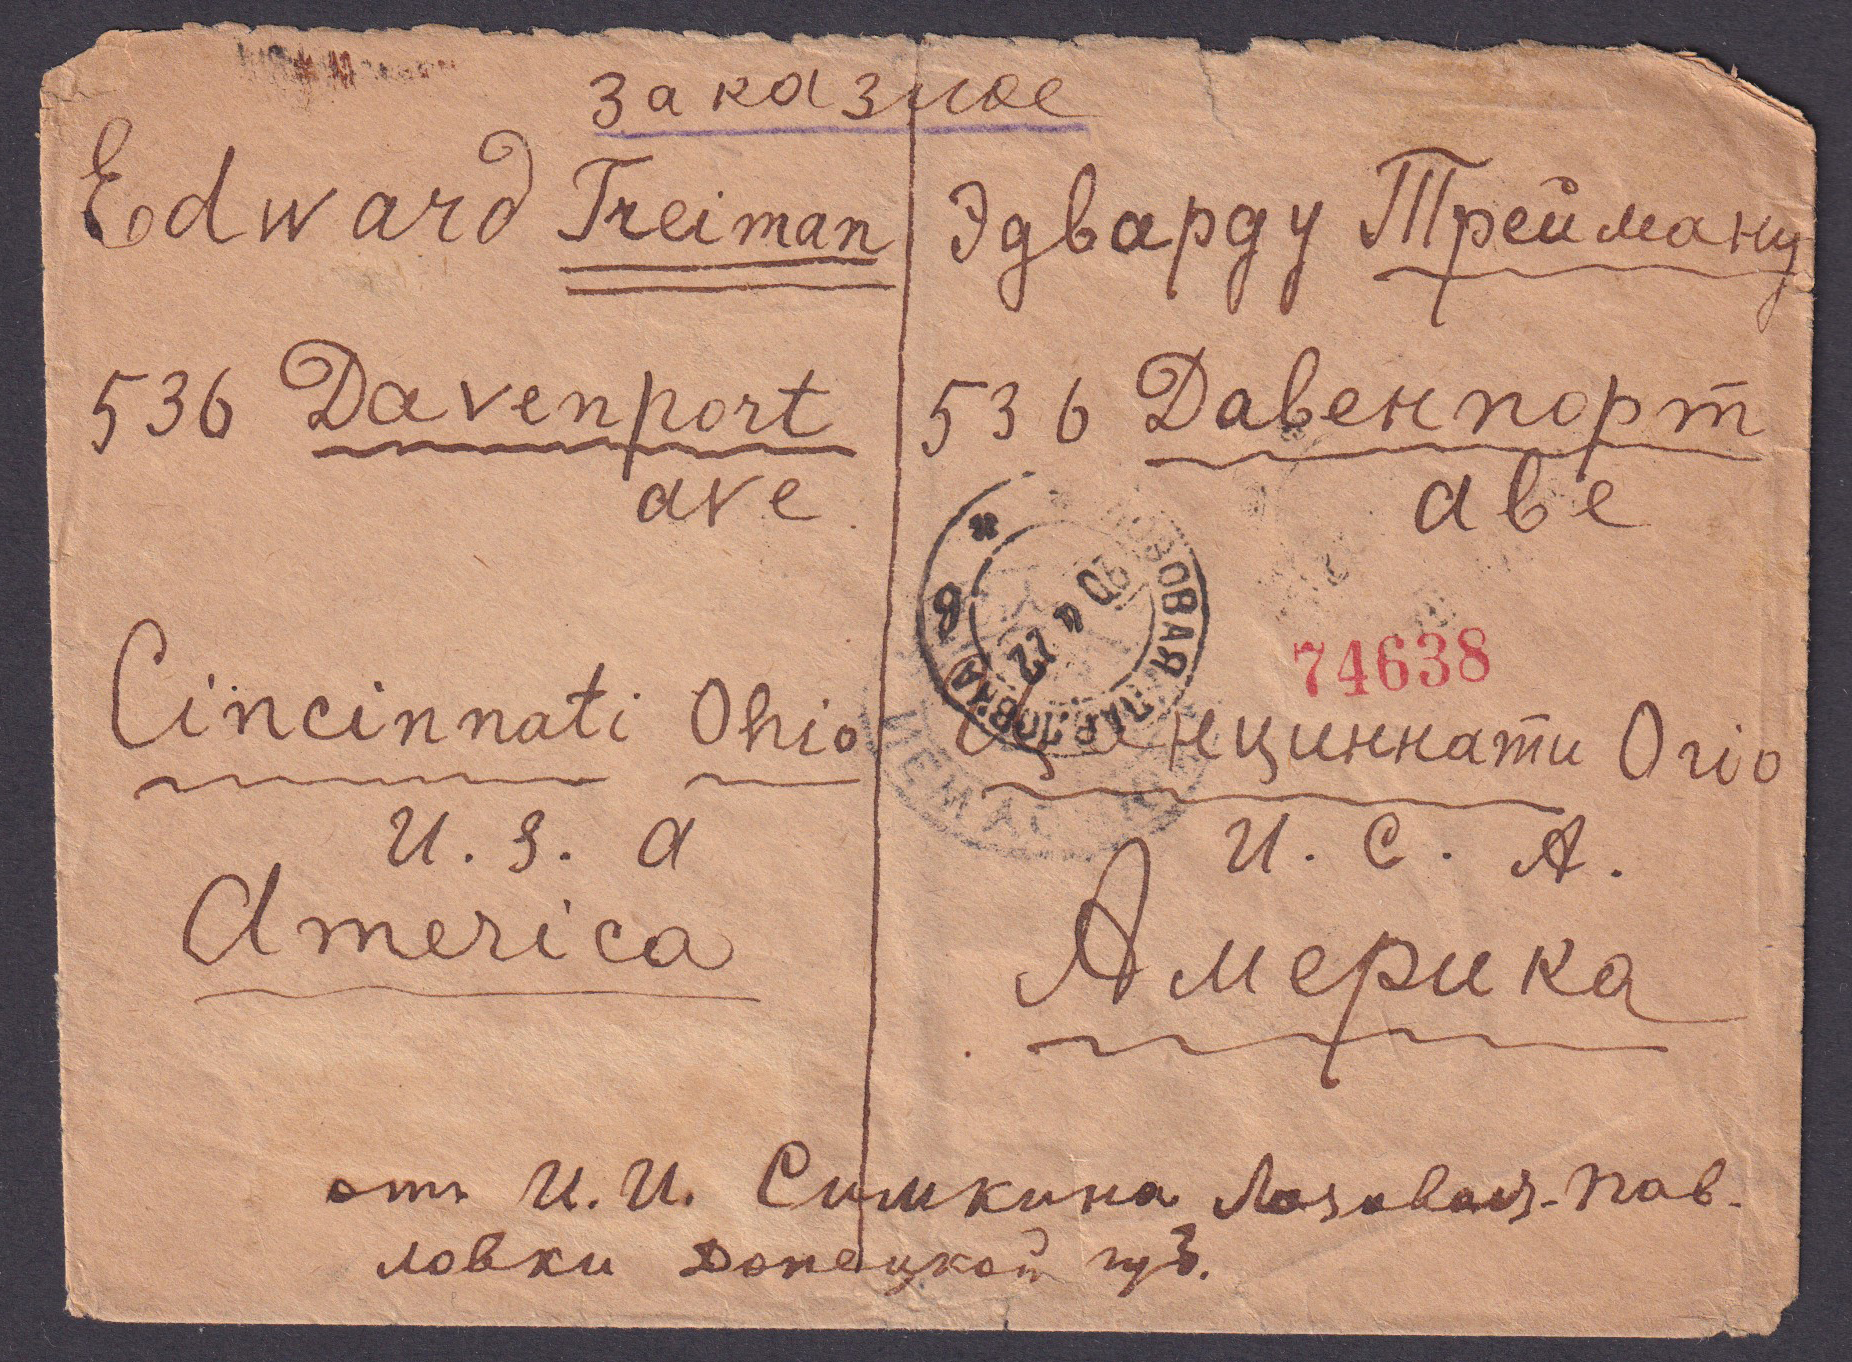 Заказное
Edward Treiman
536 Davenport
ave
Cincinnati Ohio
U. S. A
America
Эдварду Трейману
536 Давенпорт
аве
74638
Цинциннати Огіо
И. С. А.
Америка
ЛОЗОВАЯ ПАВЛОВКА
20 4 22
отъ И. И. Симкина Лозовая-Пав-
ловки Донецкой губ.